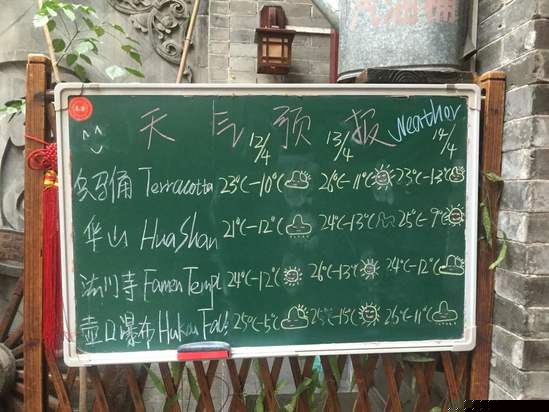 汽油桶
天气预报 Weather
12/4 13/4 14/4
兵马俑 Terracotta 23°C-10°C 26°C-11°C 23°C-13°C
华山 HuaShan 21°C-12°C 24°C-13°C 25°C-9°C
法门寺 Famen Templ 24°C-12°C 26°C-13°C 24°C-12°C
壶口瀑布 Hukou Fall 25°C-5°C 25°C-15°C 25°C-11°C